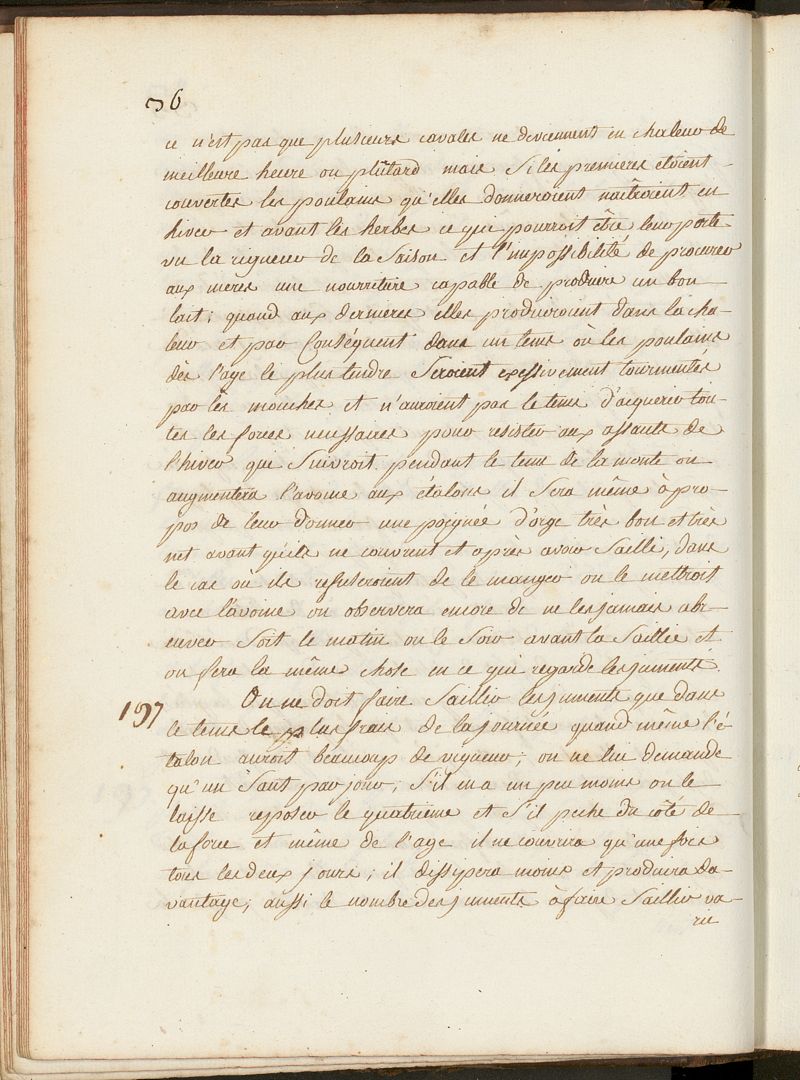 36
ce n'est pas que plusieurs cavales ne deviennent en chaleur de
meilleure heure ou plûtard mais Si les premieres etoient
couvertes les poulains qu'elles donneroient naitroient en
hiver et avant les herbes ce qui pourroit être leur perte
vu la rigueur de la Saison et l'impossibilité de procurer
aux meres une nourriture capable de produire un bon
lait; quand aux dernieres elles produiroient dans la cha-
leur et par Conséquent dans un tems où les poulains
dès l'age le plus tendre Seroient exessivement tourmentés
par les mouches et n'auroient pas le tems d'acquerir tou-
tes les forces necessaires pour resister aux assauts de
l'hiver qui Suivroit. pendant le tems de la monte on
augmentera l'avoine aux étalons il Sera même à pro-
pos de leur donner une poignée d'orge très bon et très
net avant qu'ils ne couvrent et après avoir Sailli, dans
le cas où ils refuseroient de le manger on le mettroit
avec l'avoine on observera encore de ne les jamais abr-
euver Soit le matin ou le Soir avant la Saillie et
on fera la même chose en ce qui regarde les juments.
197 On ne doit faire Saillir les juments que dans
le tems le plus frais de la journée quand même l'é-
talon auroit beaucoup de vigueur; on ne lui demande
qu'un Saut par jour; S'il en a un peu moins on le
laisse reposer le quatrieme et S'il peche du côté de
la force et même de l'age il ne couvrira qu'une fois
tous les deux jours; il dissipera moins et produira da-
vantage; aussi le nombre des juments à faire Saillir va-
rie